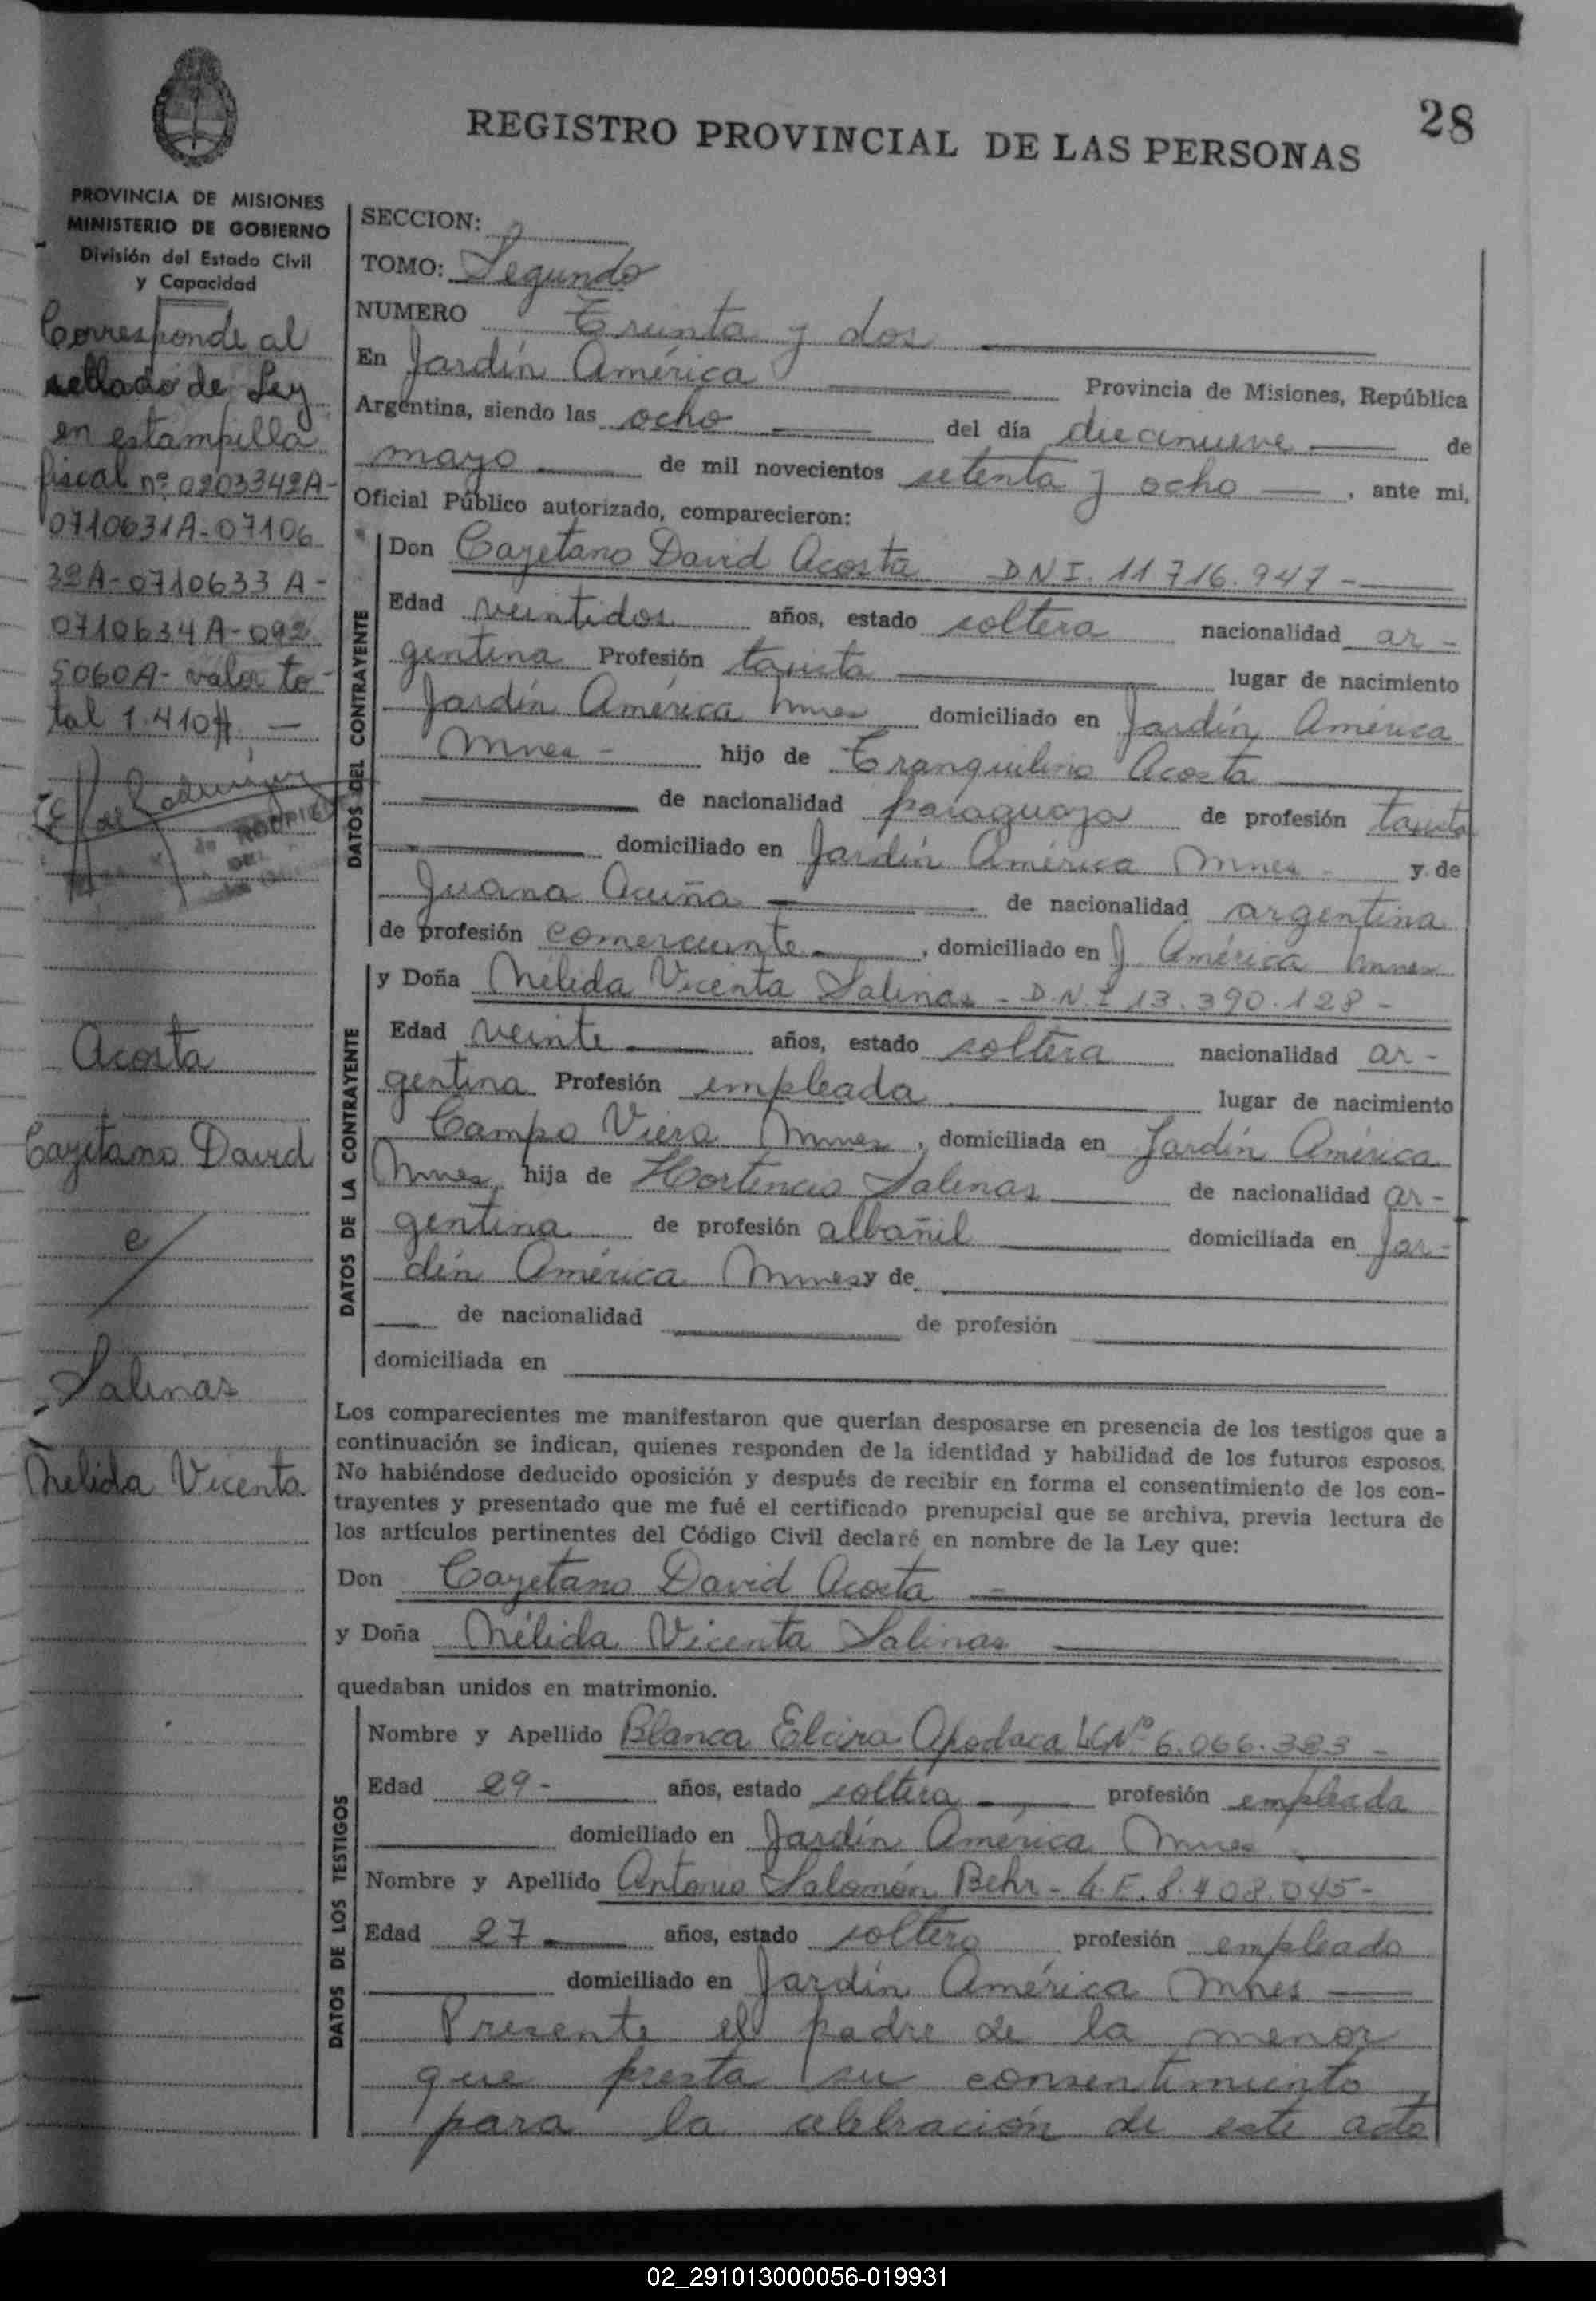 28
REGISTRO PROVINCIAL DE LAS PERSONAS
PROVINCIA DE MISIONES
MINISTERIO DE GOBIERNO
División del Estado Civil
y Capacidad
Corresponde al
sellado de Ley
en estampilla
fiscal nº 0203342A-
0710631A-07106
32A-0710633A-
0710634A-092
5060A- valor to-
tal 1.410
Acosta
Cayetano David
e/
Salinas
Nélida Vicenta
SECCION:
TOMO: Segundo
NUMERO Treinta y dos
En Jardín América Provincia de Misiones, República
Argentina, siendo las ocho del día diecinueve de
mayo de mil novecientos setenta y ocho, ante mi,
Oficial Público autorizado, comparecieron:
DATOS DEL CONTRAYENTE
Don Cayetano David Acosta DNI. 11716.947-
Edad veintidos años, estado soltera nacionalidad ar-
gentina Profesión taxista lugar de nacimiento
Jardín América Mnes domiciliado en Jardín América
Mnes - hijo de Tranquilino Acosta
de nacionalidad paraguaya de profesión taxista
domiciliado en Jardín América Mnes - y de
Juana Acuña de nacionalidad argentina
de profesión comerciante, domiciliado en J. América Mnes
DATOS DE LA CONTRAYENTE
y Doña Nélida Vicenta Salinas - D.N.I 13.390.128 -
Edad veinte años, estado soltera nacionalidad ar-
gentina Profesión empleada lugar de nacimiento
Campo Viera Mnes, domiciliada en Jardín América
Mnes hija de Hortencio Salinas de nacionalidad ar-
gentina de profesión albañil domiciliada en Jar-
dín América Mnes y de
de nacionalidad de profesión
domiciliada en
Los comparecientes me manifestaron que querían desposarse en presencia de los testigos que a
continuación se indican, quienes responden de la identidad y habilidad de los futuros esposos.
No habiéndose deducido oposición y después de recibir en forma el consentimiento de los con-
trayentes y presentado que me fué el certificado prenupcial que se archiva, previa lectura de
los artículos pertinentes del Código Civil declaré en nombre de la Ley que:
Don Cayetano David Acosta
y Doña Nélida Vicenta Salinas
quedaban unidos en matrimonio.
DATOS DE LOS TESTIGOS
Nombre y Apellido Blanca Elcira Apodaca LCNº 6.066.383 -
Edad 29- años, estado soltera profesión empleada
domiciliado en Jardín América Mnes
Nombre y Apellido Antonio Salomón Behr - L.E. 8.408.045-
Edad 27 años, estado soltero profesión empleado
domiciliado en Jardín América Mnes
Presente el padre de la menor
que presta su consentimiento
para la celebración de este acto
02_291013000056-019931